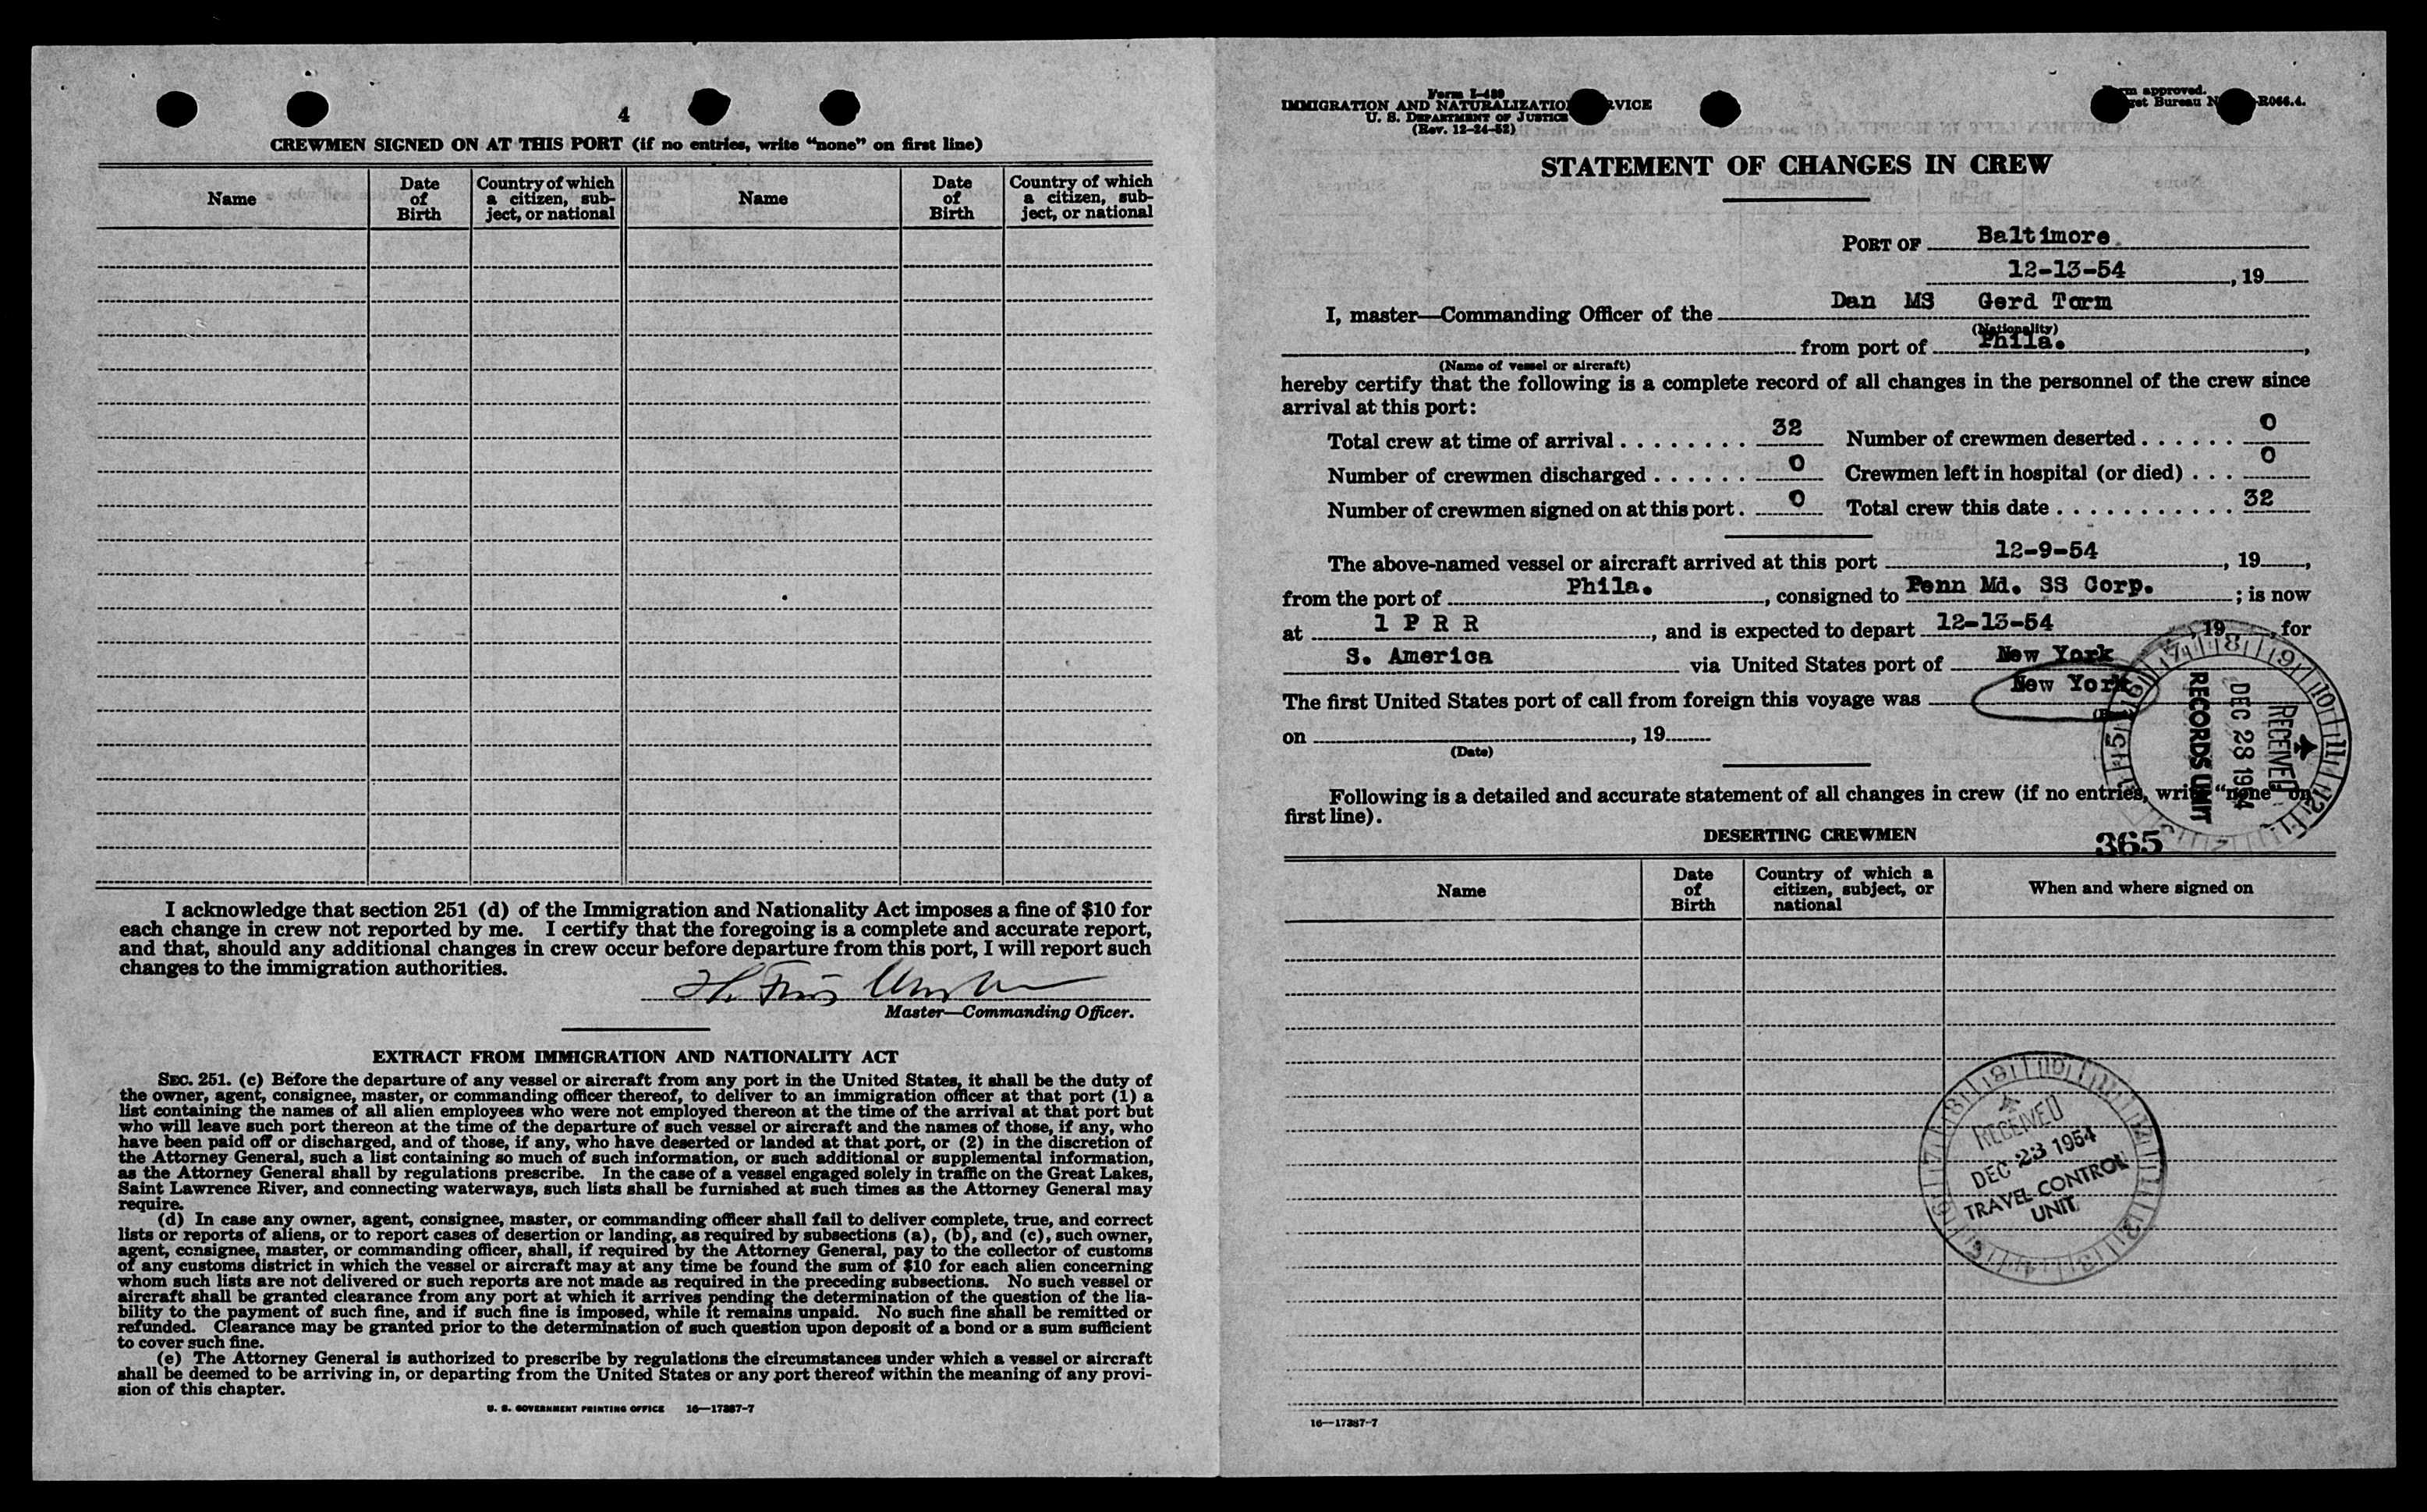 4
CREWMEN SIGNED ON AT THIS PORT (if no entries, write “none” on first line)
Name
Date of Birth
Country of which a citizen, sub-ject, or national
Name
Date of Birth
Country of which a citizen, sub-ject, or national
I acknowledge that section 251 (d) of the Immigration and Nationality Act imposes a fine of $10 for
each change in crew not reported by me. I certify that the foregoing is a complete and accurate report,
and that, should any additional changes in crew occur before departure from this port, I will report such
changes to the immigration authorities.
Master—Commanding Officer.
EXTRACT FROM IMMIGRATION AND NATIONALITY ACT
SEC. 251. (c) Before the departure of any vessel or aircraft from any port in the United States, it shall be the duty of
the owner, agent, consignee, master, or commanding officer thereof, to deliver to an immigration officer at that port (1) a
list containing the names of all alien employees who were not employed thereon at the time of the arrival at that port but
who will leave such port thereon at the time of the departure of such vessel or aircraft and the names of those, if any, who
have been paid off or discharged, and of those, if any, who have deserted or landed at that port, or (2) in the discretion of
the Attorney General, such a list containing so much of such information, or such additional or supplemental information,
as the Attorney General shall by regulations prescribe. In the case of a vessel engaged solely in traffic on the Great Lakes,
Saint Lawrence River, and connecting waterways, such lists shall be furnished at such times as the Attorney General may
require.
(d) In case any owner, agent, consignee, master, or commanding officer shall fail to deliver complete, true, and correct
lists or reports of aliens, or to report cases of desertion or landing, as required by subsections (a), (b), and (c), such owner,
agent, consignee, master, or commanding officer, shall, if required by the Attorney General, pay to the collector of customs
of any customs district in which the vessel or aircraft may at any time be found the sum of $10 for each alien concerning
whom such lists are not delivered or such reports are not made as required in the preceding subsections. No such vessel or
aircraft shall be granted clearance from any port at which it arrives pending the determination of the question of the lia-
bility to the payment of such fine, and if such fine is imposed, while it remains unpaid. No such fine shall be remitted or
refunded. Clearance may be granted prior to the determination of such question upon deposit of a bond or a sum sufficient
to cover such fine.
(e) The Attorney General is authorized to prescribe by regulations the circumstances under which a vessel or aircraft
shall be deemed to be arriving in, or departing from the United States or any port thereof within the meaning of any provi-
sion of this chapter.
U. S. GOVERNMENT PRINTING OFFICE 16—17387-7
Form I-489
IMMIGRATION AND NATURALIZATIO RVICE
U. S. DEPARTMENT OF JUSTICE
(Rev. 12-24-52)
m approved.
get Bureau N R066.4.
STATEMENT OF CHANGES IN CREW
PORT OF Baltimore
12-13-54, 19
I, master—Commanding Officer of the Dan MS Gerd Torm
(Nationality)
from port of Phila.,
(Name of vessel or aircraft)
hereby certify that the following is a complete record of all changes in the personnel of the crew since
arrival at this port:
Total crew at time of arrival 32 Number of crewmen deserted 0
Number of crewmen discharged 0 Crewmen left in hospital (or died) 0
Number of crewmen signed on at this port 0 Total crew this date 32
The above-named vessel or aircraft arrived at this port 12-9-54, 19,
from the port of Phila., consigned to Penn Md. SS Corp.; is now
at 1 P R R, and is expected to depart 12-13-54, 19, for
S. America via United States port of New York
The first United States port of call from foreign this voyage was New York
on , 19
(Date)
RECEIVED
DEC 28 1954
RECORDS UNIT
Following is a detailed and accurate statement of all changes in crew (if no entries, write “none” on
first line).
DESERTING CREWMEN
365
Name
Date of Birth
Country of which a citizen, subject, or national
When and where signed on
RECEIVED
DEC 23 1954
TRAVEL CONTROL
UNIT
16—17387-7